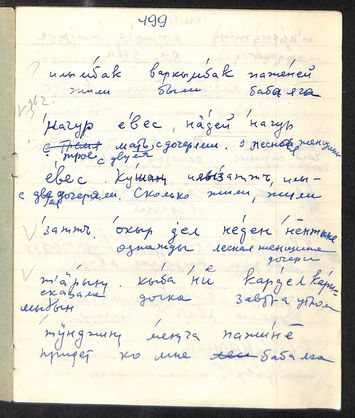 499
илымбак варкымбак паженей
жили были бабаяга
начур е́вес, на́дей начур
мать с дочерьми. 3 лесные женщины
трое с двумя
е́вес. Кушаң илызатть, илы-
с двумя дочерями. Сколько жили, жили
затть о́кыр дел не́ден не́нтыне
однажды лесная женщина дочери
тӓрың. кы́ба не̄ кардел кары-
сказала дочка завтра утром
мыӷын
тӱнджиң меңга пажинӗ
придет ко мне баба яга